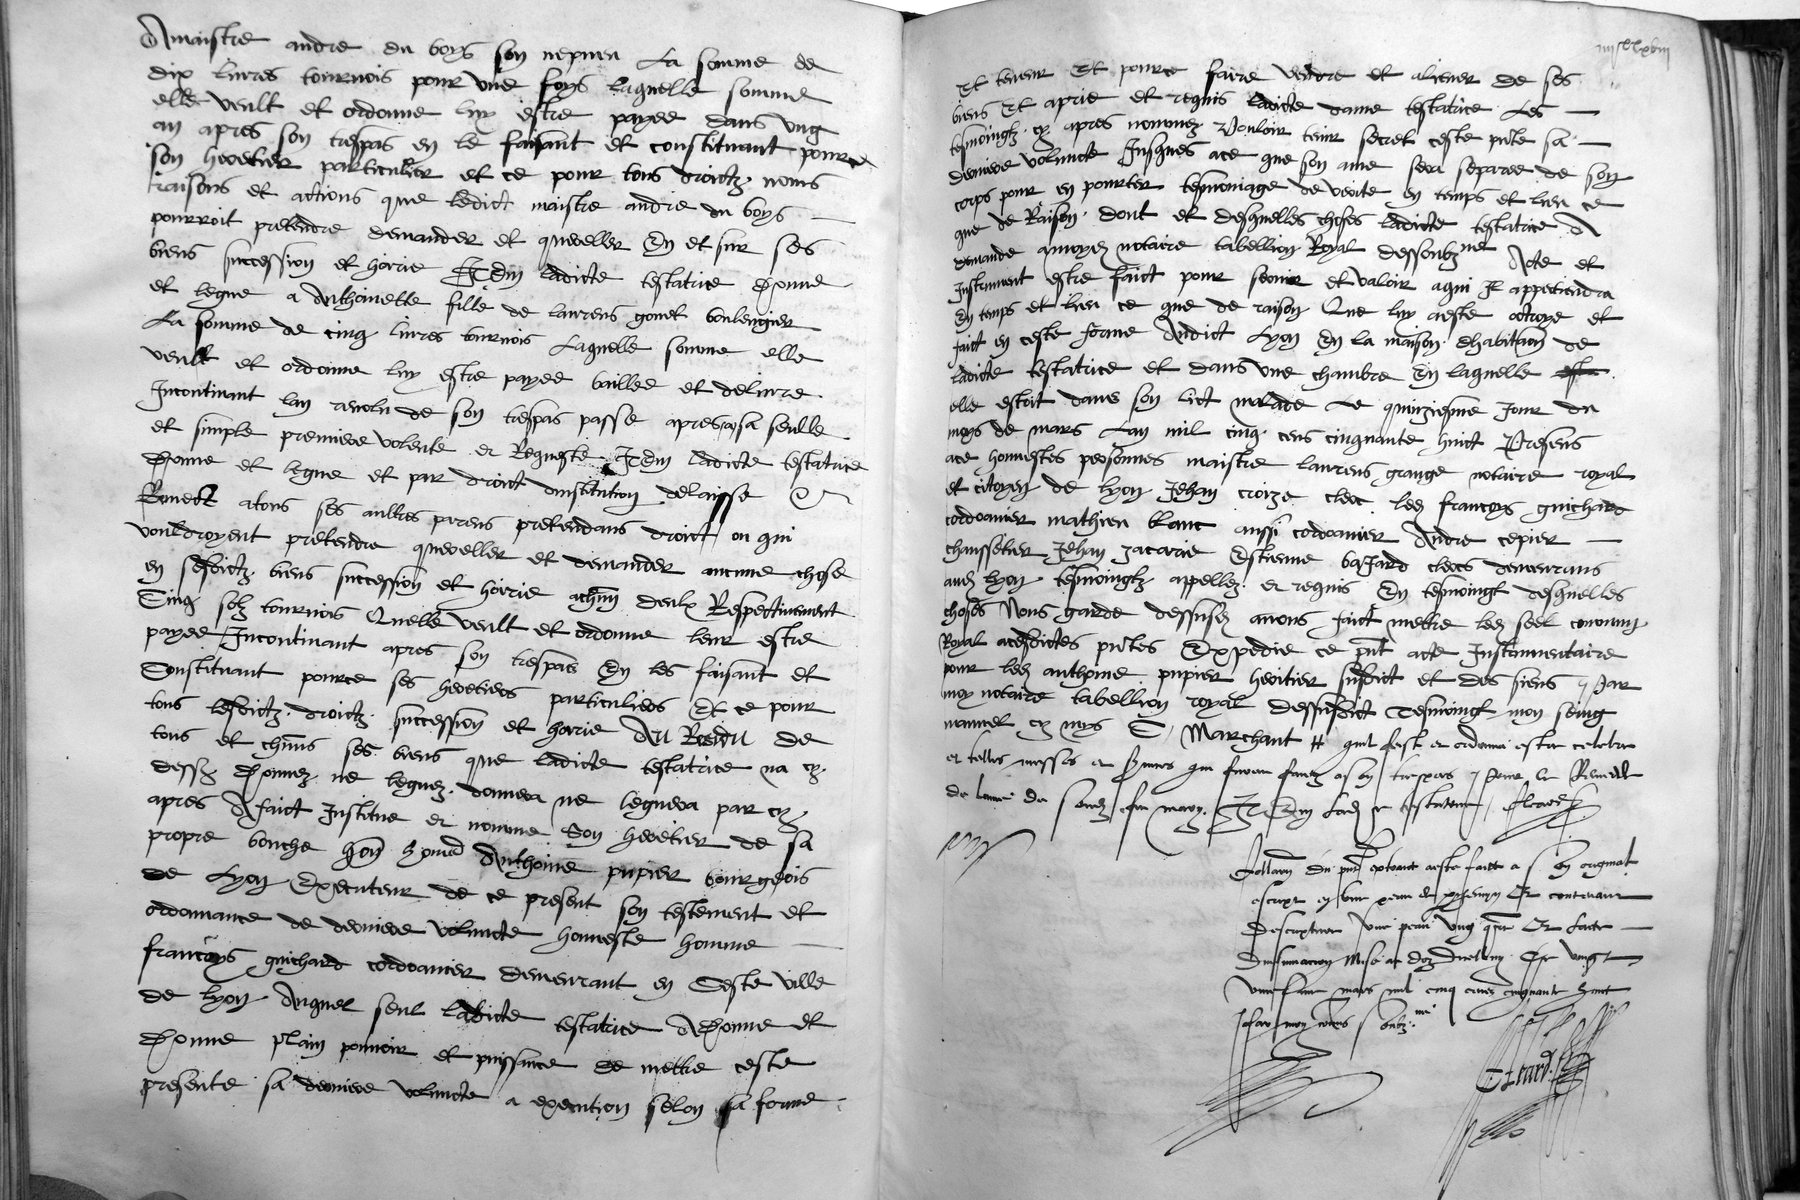 A maistre andre du boys son nepveu La somme de
dix livres tournois pour une foys laquelle somme
elle veult et ordonne luy estre payee dans ung
an apres son trespas en le faisant et constituant pource
son heretier particulier et ce pour tous droictz noms
raisons et actions que ledict maistre andre du boys
pourroit pretendre demander et quereller En et sur ses
biens succession et hoirie Item ladicte testatrice donne
et legue a Anthoinette fille de laurens gonet boulengier
La somme de cinq livres tournois Laquelle somme elle
veult et ordonne luy estre payee baillee et delivre
Incontinant lan revolu de son trespas passe apres a sa seulle
et simple premiere volente et Requeste Item ladicte testatrice
donne et legue et par droict dinstitution delaisse
atous ses aultres parens pretendans droict ou qui
vouldroyent pretendre quereller et demander aucune chose
en sesdictz biens succession et hoirie achun deulx Respectivement
Cinq solz tournois Quelle veult et ordonne leur estre
payee Incontinant apres son trespas En les faisant et
Constituant pource ses heretiers particuliers Et ce pour
tous lesdictz droictz succession et hoirie Au Residu de
tous et chuns ses biens que ladicte testatrice na cy
dessz donnez ne leguez donnera ne leguera par cy
apres A faict Institue et nomme Son heretier de sa
propre bouche hon Anthoine pupier bourgeois
de Lyon Executeur de ce present son testement et
ordonance de derniere volunte honneste homme
francoys guichard cordoanier demeurant en Ceste ville
de lyon Auquel seul ladicte testatrice A donne et
donne plain pouvoir et puissance de mettre ceste
presente sa derniere volunte a execution selon sa forme
et teneur Et pource faire vendre et aliener de ses
biens Et a prie et requis ladicte dame testatrice Les
tesmoingtz cy apres nommez Vouloir tenir secret ceste pnte sa
derniere volunte Jusques ace que son ame sera separee de son
corps pour en pourter tesmoniage de verite en temps et lieu ce
que de Raison Dont et desquelles choses ladicte testatrice A
demande amoy notaire tabellion Royal dessoubzne Acte et
Instrument estre faict pour servir et valoir aqui Il appertiendra
En temps et lieu ce que de raison Que luy aeste octroye et
faict en ceste forme Audict Lyon En la maison dhabitaon de
ladicte testatrice et dans une chambre En laquelle
elle estoit dans son lict malade Le quinziesme Jour du
moys de mars Lan mil cinq cens cinquante huict Presens
ace honnestes personnes maistre laurens grange notaire royal
et citoyen de lyon Jehan croize clerc led francoys guichard
cordoanier mathieu blanc aussi cordoanier Andre cepier
chaussetier Jehan zacarie Estienne baJard clercs demeurans
aud lyon tesmoingtz appellez et requis En tesmoingt desquelles
choses Nous garde dessusd avons faict mettre led seel commun
Royal acesdictes pntes Expedie ce pnt acte Instrumentaire
pour led anthoine pupier heritier susdict et des siens Par
moy notaire tabellion royal dessusdict Tesmoingt mon seing
manuel cy mys C. Marchant quil soit et ordonne estre celebre
et telles messes et que seront
de lame de Item Lad testatrice
Collaon du pnt extraict aeste faicte a son original
escript en une peau de parchemyn Et contenant
Descripture Une peau Ung
Dinsinuacion Mise au doz Et Vingt
Unze mars mil cinq cens cinquante huict
Par moy soubz ne